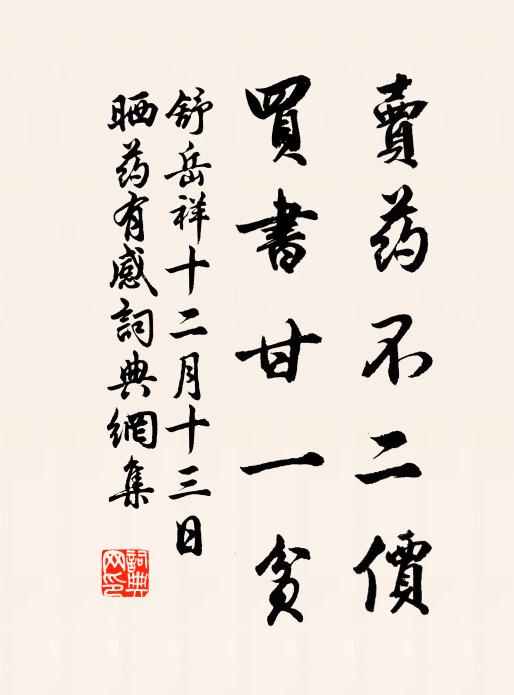 賣药不二價
買書甘一貧
舒岳祥十二月十三日
晒药有感詞典網集
詞典网印